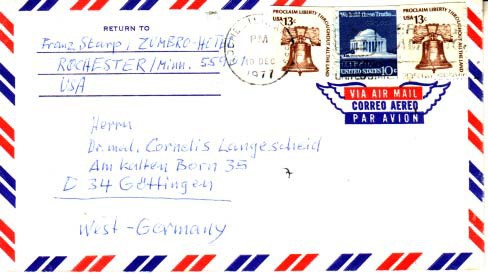 RETURN TO
Franz Starp, ZUMBRO-HOTEL
ROCHESTER/Minn. 559
USA
PM
10 DEC
1977
PROCLAIM LIBERTY THROUGHOUT ALL THE LAND
USA 13c
We hold these Truths...
UNITED STATES 10c
PROCLAIM LIBERTY THROUGHOUT ALL THE LAND
USA 13c
VIA AIR MAIL
CORREO AEREO
PAR AVION
Herrn
Dr. med. Cornelis Langescheid
Am kalten Born 35
D 34 Göttingen
West-Germany